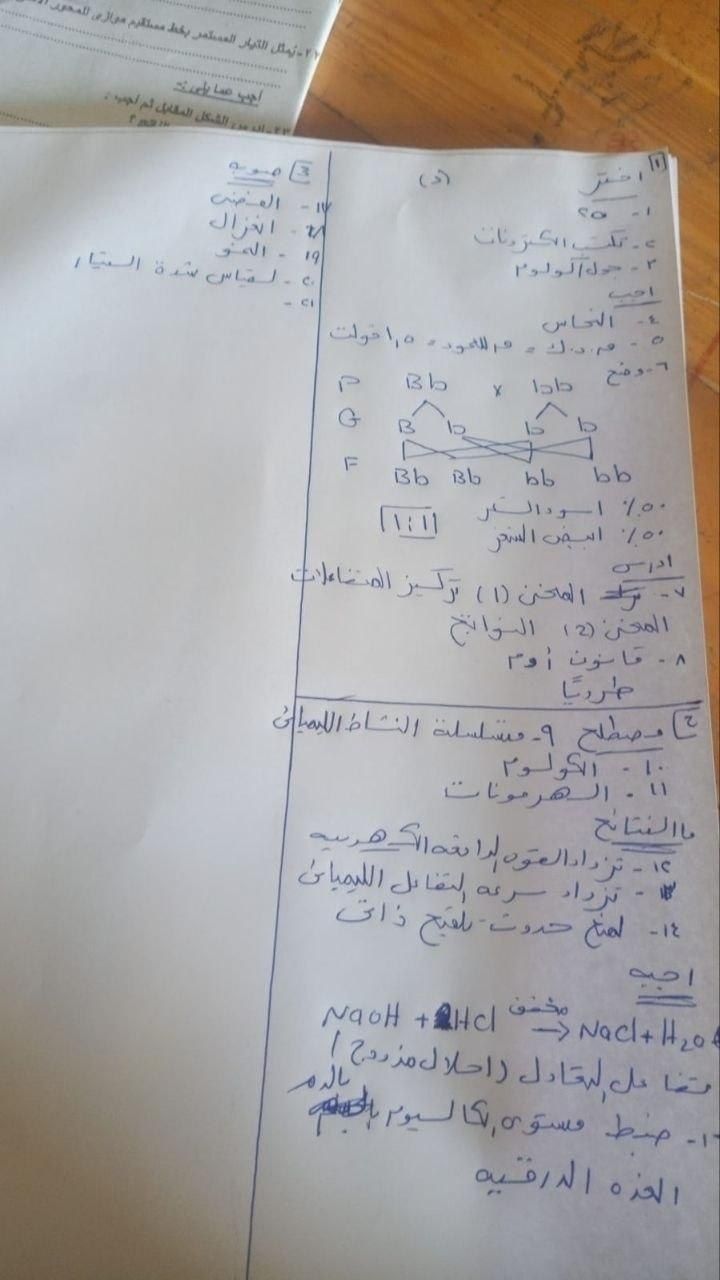 ٢٢- يمثل التيار المستمر بخط مستقيم موازى للمحور
أجب عما يلى :-
٢٣- ادرس الشكل المقابل ثم أجب :
(٣)
١ اختر
١- ٢٥
٢- تكتسب الكترونات
٣- جول/كولوم
اجب
٤- النحاس
٥- ق.د.ك = ق العمود = ١,٥ فولت
٦- وضح
P Bb x bb
G B b b b
F Bb Bb bb bb
٥٠٪ اسود الشعر
٥٠٪ ابيض الشعر
١:١
ادرس
٧- المنحنى (1) تركيز المتفاعلات
المنحنى (2) النواتج
٨- قانون أوم
طرديًا
٢ مصطلح ٩- متسلسلة النشاط الكيميائى
١٠- الكولوم
١١- الهرمونات
ما النتائج
١٢- تزداد القوه الدافعه الكهربيه
- تزداد سرعه التفاعل الكيميائى
١٤- لمنع حدوث تلقيح ذاتى
اجب
NaOH + HCl مخفف → NaCl + H2O
تفاعل التعادل (احلال مزدوج)
١٦- ضبط مستوى الكالسيوم بالدم
الغده الدرقيه
3 صوب
١٧- الفضى
١٨- انعزال
١٩- النمو
٢٠- لقياس شدة التيار
٢١-